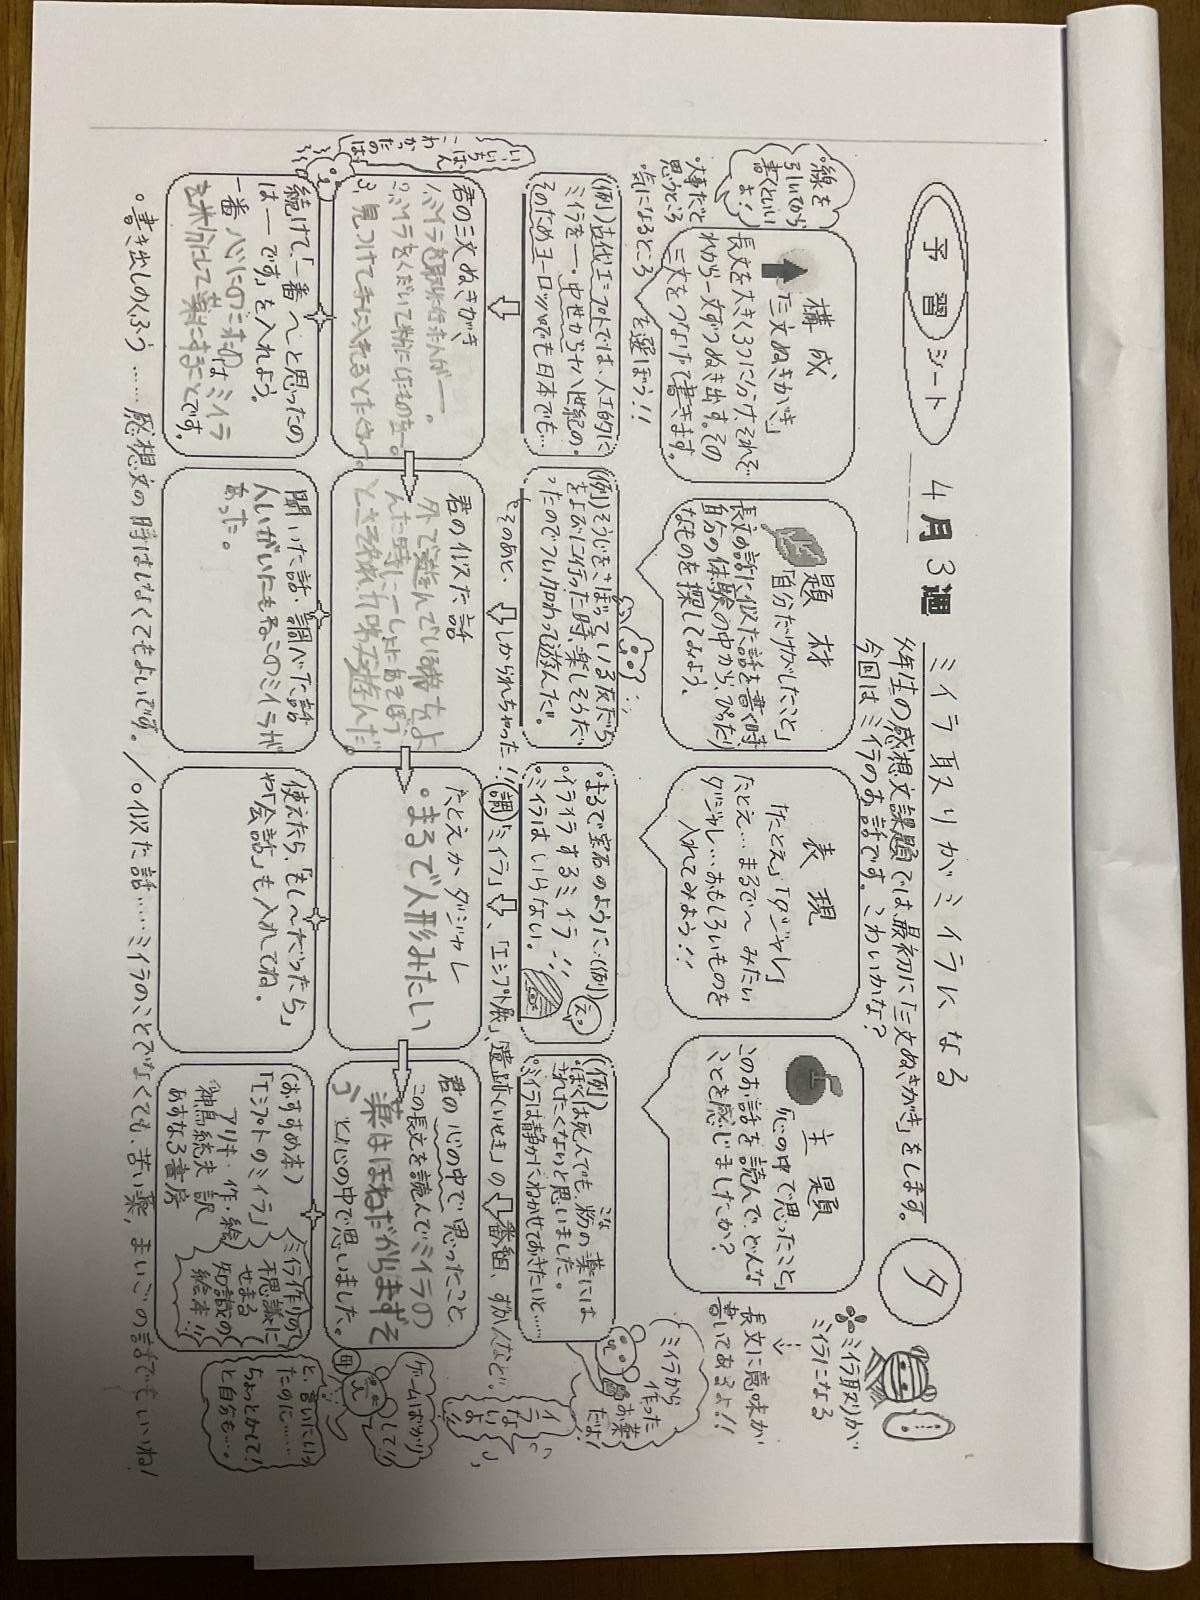 予習シート
4月3週
ミイラ取りがミイラになる
夕
今年生の感想文課題では、最初に「三文ぬきがき」をします。
今回はミイラのお話です。こわいかな？
ミイラ取りが
ミイラになる
↓
長文に意味が
書いてあるよ!!
構成
「三文ぬきがき」
長文を大きく3つに分け、それぞ
れから一文ずつぬき出す。その
三文をつなげて書きます。
線を
引いてから
書くといい
よ！
・大事だと
思うところ
・気になるところ
を選ぼう!!
題材
「自分だけがしたこと」
長文の話に似た話を書く時
自分の体験の中から、ぴったり
なものを探してみよう。
表現
「たとえ」「ダジャレ」
たとえ…まるで〜みたい
ダジャレ…おもしろいものを
入れてみよう!!
主題
「心の中で思ったこと」
このお話を読んで、どんな
ことを感じましたか？
(例)古代エジプトでは、人工的に
ミイラを―。中世から十八世紀の。
そのためヨーロッパでも日本でも…
(例)そうじをさぼっている友だち
をよびに行った時、楽しそうだ
ったのでつい加わって遊んだ。
そのあと、しかられちゃった!!
まるで宝石のように…(例)
・イライラするミイラ…!!
・ミイラはいらない。
えっ
(例)
ぼくは死んでも、粉の薬には
こな
されたくないと思いました。
ミイラは静かにねかせておきたいと……
ミイラから
作った
お薬
だよ！
調「ミイラ」、「エジプト展」、「遺跡(いせき)」の番組、ずかんなど。
君の三文ぬきがき
1.ミイラを取りに行った人が―。
2.ミイラをくだいて粉にしたものを―。
3 見つけて手に入れるとたくさん。
君の似た話
外で遊んでいる彼女をよ
んだ時に一しょにあそぼう
とさそわれ加わって遊んだ。
たとえかダジャレ
・まるで人形みたい
君の心の中で思ったこと
この長文を読んでミイラの
薬はほねだからまずそ
う と心の中で思いました。
いち
ばんは
わかったの
続けて、「一番〜と思ったの
は―です」を入れよう。
一番心にのこったのはミイラ
を粉にして薬にすることです。
聞いた話・調べた話
人いがいにもねこのミイラが
あった。
使えたら、「もし〜だったら」
や「会話」も入れてね。
(おすすめ本)
「エジプトのミイラ」
アリキ・作・絵
神鳥統夫 訳
あすなろ書房
ミイラ作りの
不思議に
せまる
知識の
絵本!!!
母
ゲームばかり
して!!
と、言いにいっ
たのに……
ちょっとかして！
と自分も…。
。書き出しのくふう……感想文の時はしなくてもよいです。／。似た話……ミイラのことでなくても、苦い薬、まいごの話でもいいね！